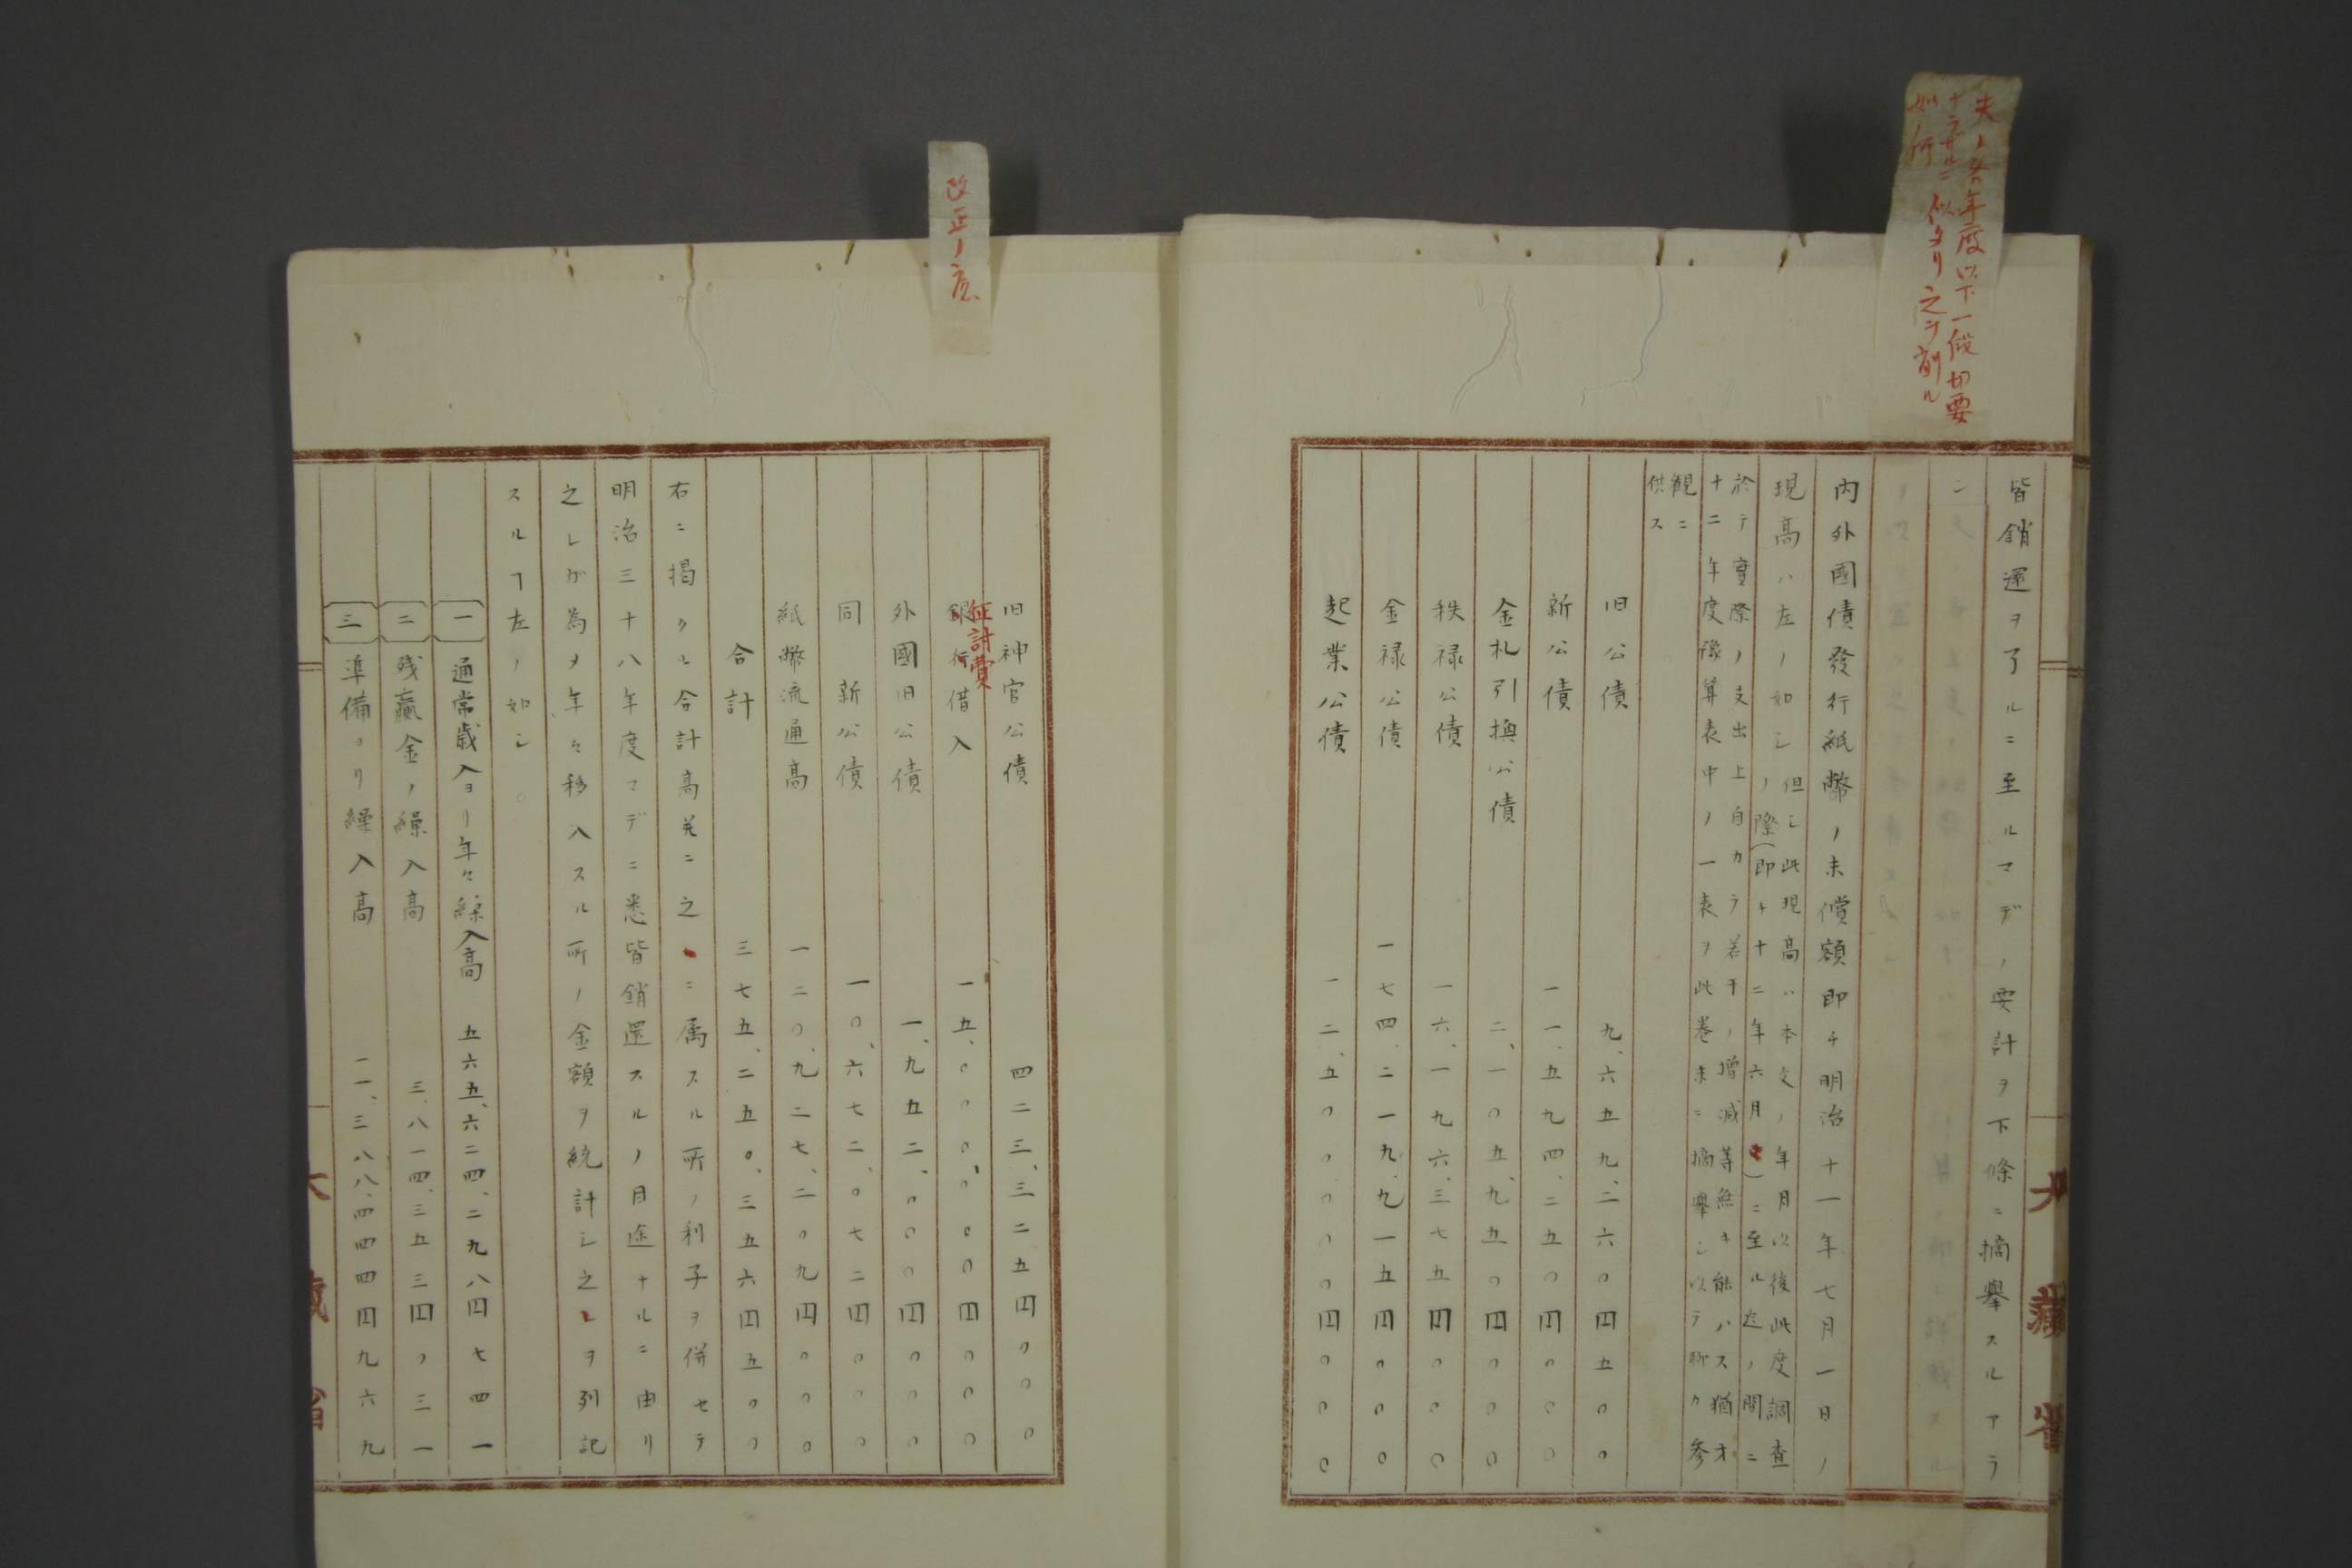 夫ノ各年度以下一段切要
ナラザルニ似タリ之ヲ削ル
如何
皆銷還ヲ了ルニ至ルマデノ要計ヲ下條ニ摘擧スルアラ
内外國債發行紙幣ノ未償額即チ明治十一年七月一日ノ
現高ハ左ノ如シ
但シ此現高ハ本文ノ年月以後此度調査
ノ際(即チ十二年六月)ニ至ル迄ノ間ニ
於テ實際ノ支出上自カラ若干ノ增減等無キ能ハス猶ホ
十二年度豫算表中ノ一表ヲ此巻末ニ摘擧シ以テ聊カ参
觀ニ
供ス
旧公債 九、六五九、二六〇円五〇〇
新公債 一一、五九四、二五〇円〇〇〇
金札引換公債 二、一〇五、九五〇円〇〇〇
秩禄公債 一六、一九六、三七五円〇〇〇
金禄公債 一七四、二一九、九一五円〇〇〇
起業公債 一二、五〇〇、〇〇〇円〇〇〇
大藏省
改正ノ意
旧神官公債 四二三、三二五円〇〇〇
征討費
銀行借入 一五、〇〇〇、〇〇〇円〇〇〇
外國旧公債 一、九五二、〇〇〇円〇〇〇
同新公債 一〇、六七二、〇七二円〇〇〇
紙幣流通高 一二〇、九二七、二〇九円〇〇〇
合計 三七五、二五〇、三五六円五〇〇
右ニ揭クル合計高并ニ之ニ属スル所ノ利子ヲ併セテ
明治三十八年度マデニ悉皆銷還スルノ目途ナルニ由リ
之レガ為メ年々移入スル所ノ金額ヲ統計シ之ヲ列記
スルヿ左ノ如シ。
一 通常歳入ヨリ年々繰入高 五六五、六二四、二九八円七四一
二 残贏金ノ繰入高 三、八一四、三五三円〇三一
三 準備ヨリ繰入高 二一、三八八、四四四円九六九
大藏省